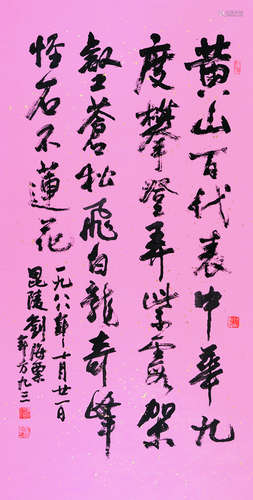 黄山百代表中華九
度攀登弄紫霞架
壑蒼松飛白龍奇峰
怪石不蓮花
一九八八年十月廿一日
毘陵劉海粟
年方九三